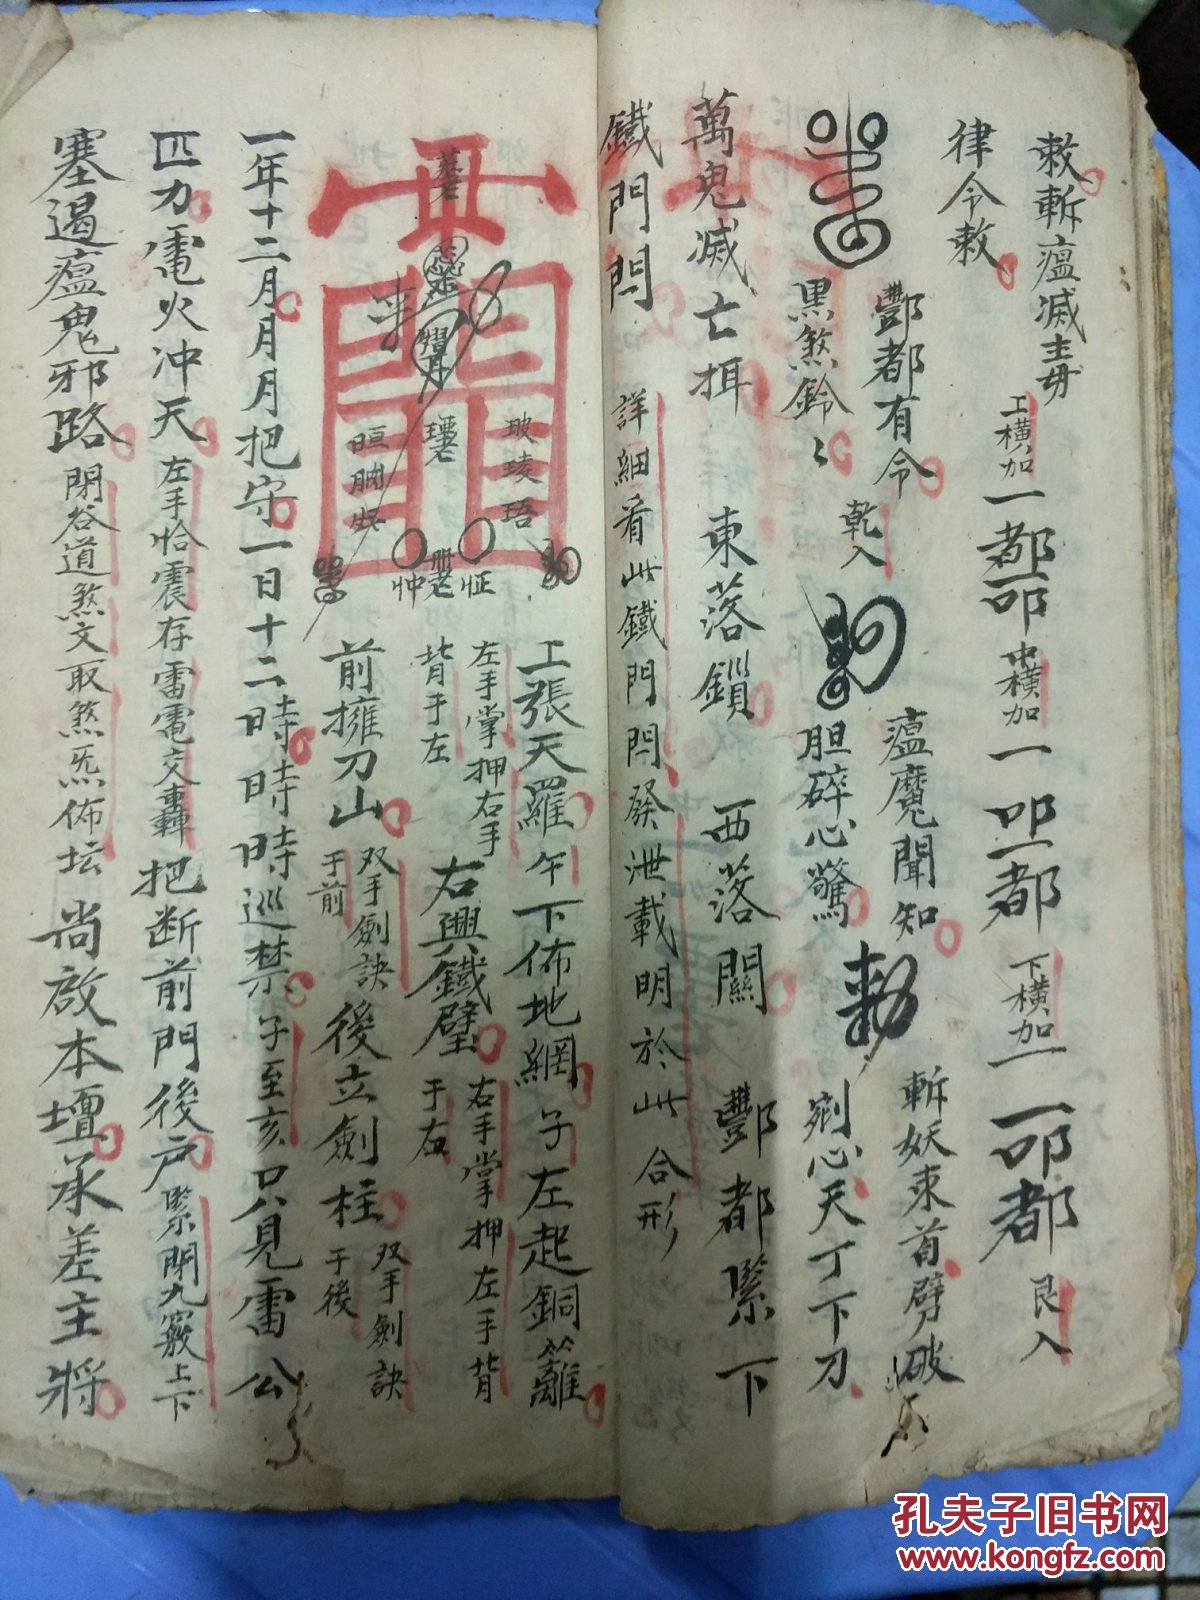 敕斬瘟滅毒
上橫加一都卬中橫加一卬都下橫加一卬都 艮入
律令敕
酆都有令 瘟魔聞知 斬妖束首劈破
乾入
黑煞鈴 胆碎心驚 剜心天丁下刀
萬鬼滅亡 東落鎖 西落關 酆都緊下
鐵門閂 詳細看此鐵門閂發泄載明於此合形
玻琖珸
上張天羅午下佈地網子左起銅籬
左手掌押右手背手左
右興鐵壁 右手掌押左手背于右
前擁刀山 双手劍訣于前 後立劍柱 双手劍訣于後
一年十二月月月把守一日十二時時時巡禁子至亥只見雷公
匹力電火冲天左手恰震存雷電交轟把断前門後户緊閉九竅上下
塞遏瘟鬼邪路閉谷道煞文取煞炁佈坛尚啟本壇承差主將
孔夫子旧书网
www.kongfz.com